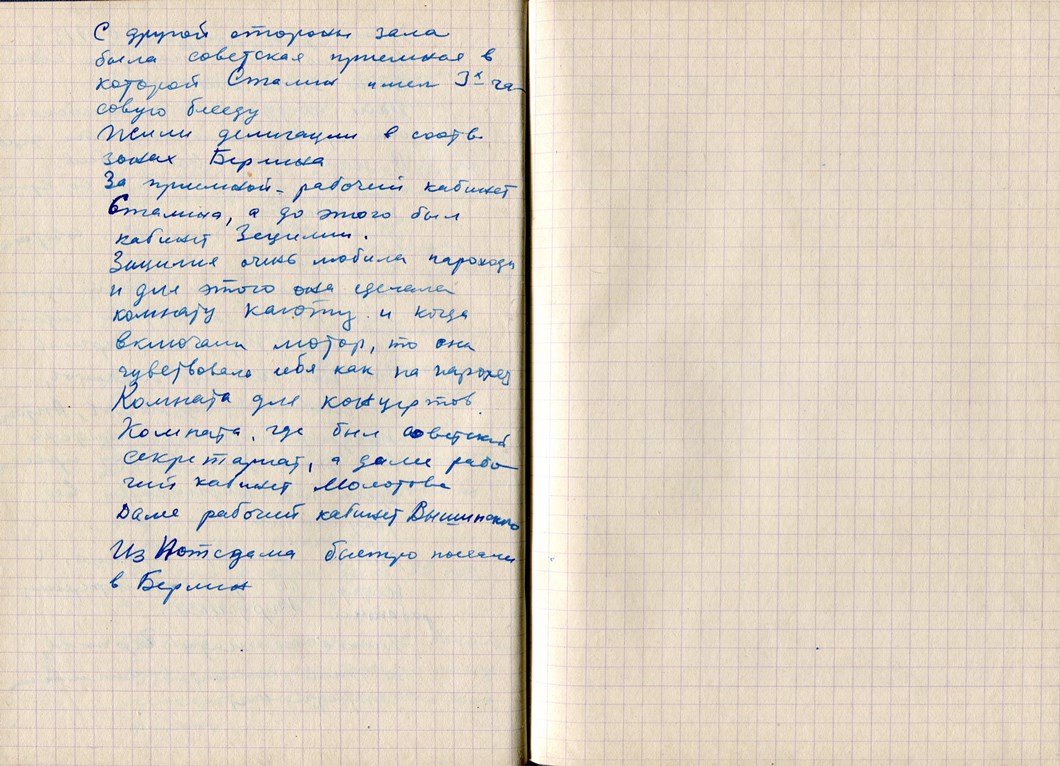 С другой стороны зала
была советская приемная в
которой Сталин имел 3х ча
совую беседу
Жили делигации в соотв.
зонах Берлина
За приемной - рабочий кабинет
Сталина, а до этого был
кабинет Зецилии.
Зицилия очень любила пароходы
и для этого она сделала
комнату каюту и когда
включали мотор, то она
чувствовала себя как на пароход
Комната для концертов.
Комната, где был советский
секретариат, а дале рабо
чий кабинет Молотова
Дале рабочий кабинет Вышинского
Из Потсдама быстро поехали
в Берлин